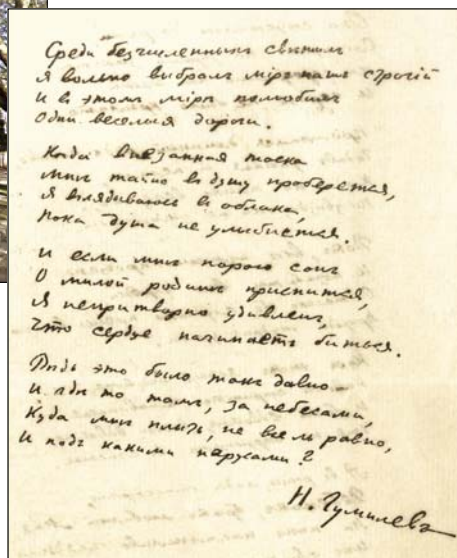 Среди безчисленныхъ свѣтилъ
Я вольно выбралъ міръ нашъ строгій
И въ этомъ мірѣ полюбилъ
Одни веселыя дороги.
Когда внезапная тоска
Мнѣ тайно въ душу проберется,
Я вглядываюсь въ облака,
Пока душа не улыбнется.
И если мнѣ порою сонъ
О милой родинѣ приснится,
Я непритворно удивленъ,
Что сердце начинаетъ биться.
Вѣдь это было такъ давно
И гдѣ то тамъ, за небесами,
Куда мнѣ плыть, не все ль равно,
И подъ какими парусами?
Н. Гумилевъ